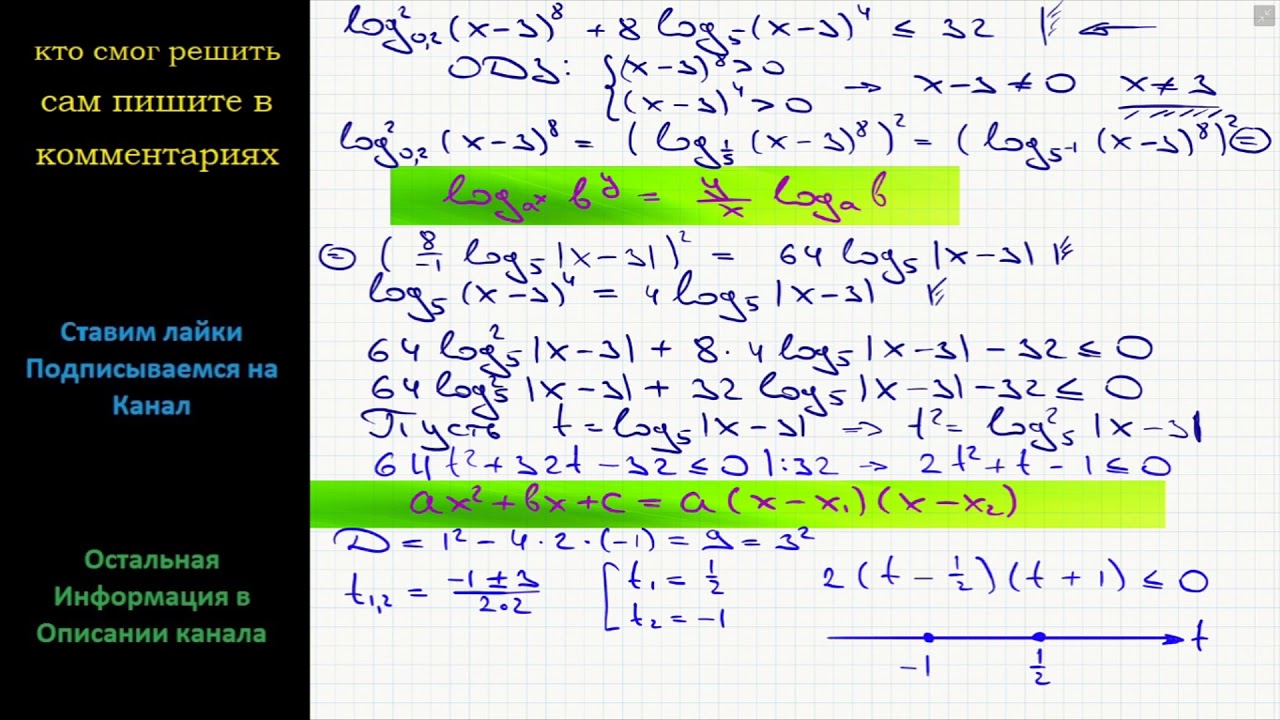 кто смог решить
сам пишите в
комментариях
Ставим лайки
Подписываемся на
Канал
Остальная
Информация в
Описании канала
log²₀,₂(x-3)⁸ + 8 log₅(x-3)⁴ ≤ 32
ОДЗ: {(x-3)⁸>0
{(x-3)⁴>0 → x-3≠0 x≠3
log²₀,₂(x-3)⁸ = (log_{1/5}(x-3)⁸)² = (log_{5⁻¹}(x-3)⁸)² =
log_{aˣ} bʸ = y/x log_a b
= (8/-1 log₅|x-3|)² = 64 log₅|x-3|
log₅(x-3)⁴ = 4 log₅|x-3|
64 log²₅|x-3| + 8·4 log₅|x-3| - 32 ≤ 0
64 log²₅|x-3| + 32 log₅|x-3| - 32 ≤ 0
Пусть t = log₅|x-3| → t² = log²₅|x-3|
64t² + 32t - 32 ≤ 0 |:32 → 2t² + t - 1 ≤ 0
ax² + bx + c = a(x-x₁)(x-x₂)
D = 1² - 4·2·(-1) = 9 = 3²
t₁,₂ = (-1±3)/(2·2) [t₁ = 1/2 2(t - 1/2)(t + 1) ≤ 0
[t₂ = -1
t
-1 1/2